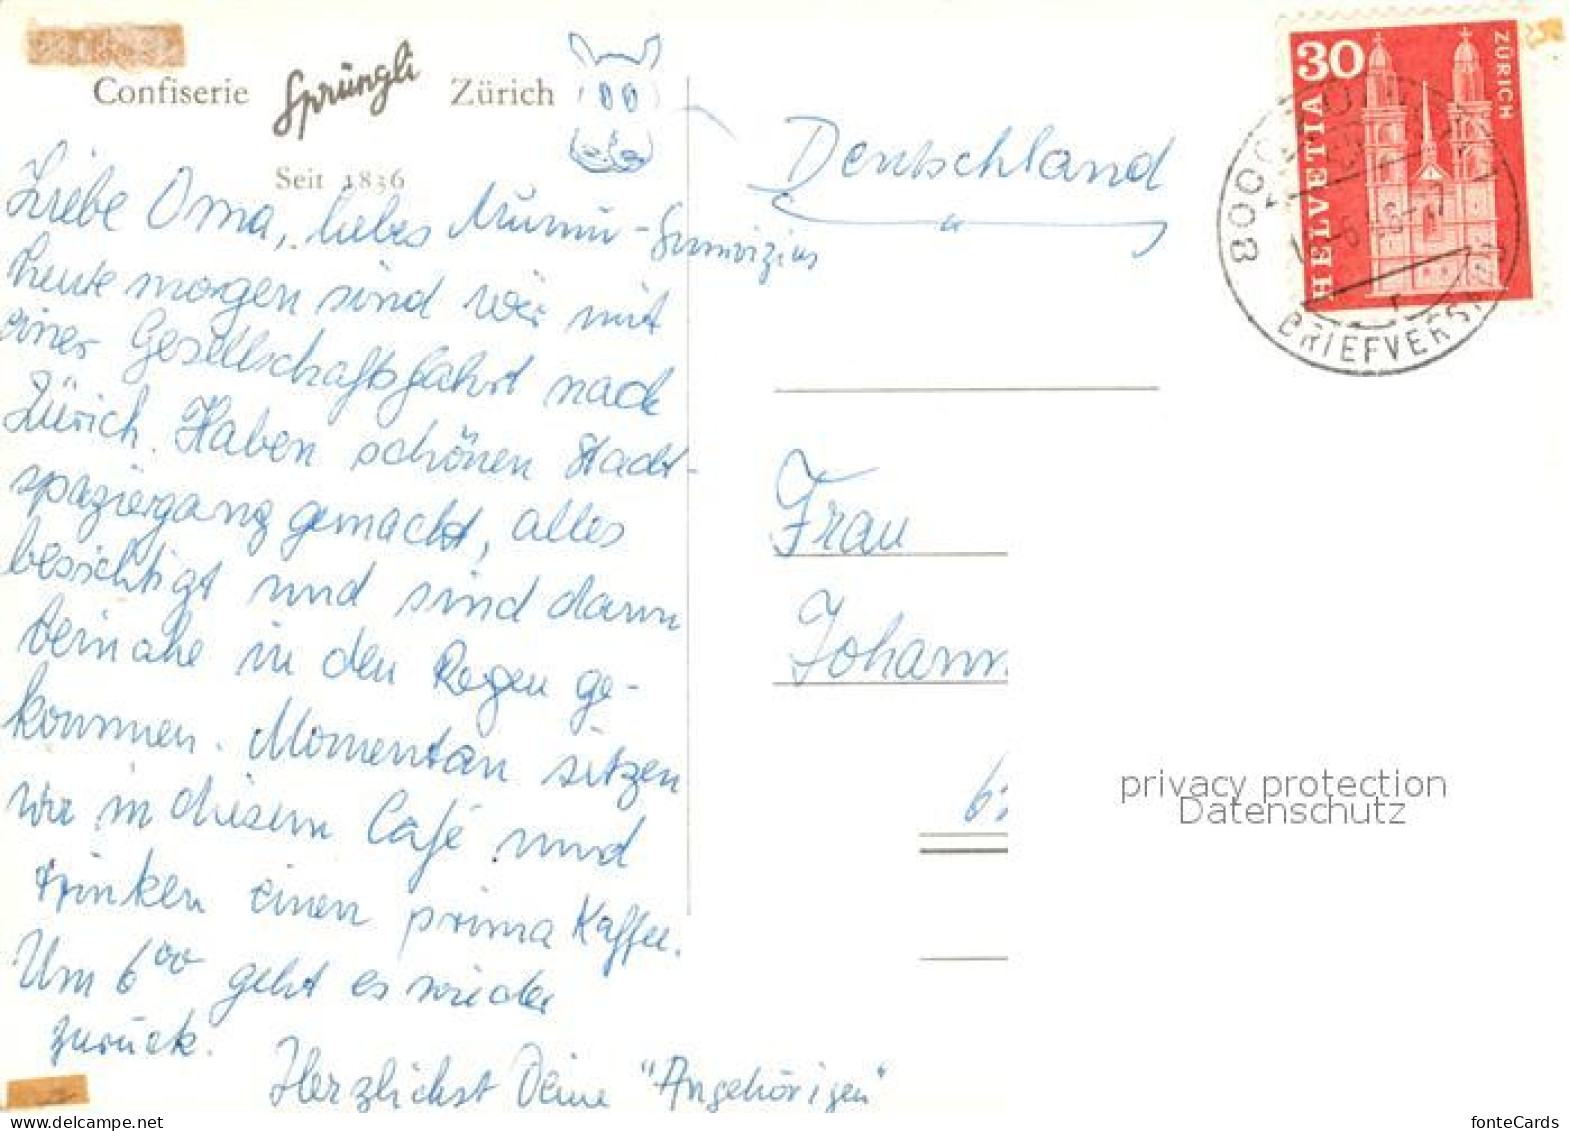 Confiserie Sprüngli Zürich
Seit 1836
Liebe Oma, liebes Mumu-
heute morgen sind wir mit
einer Gesellschaftsfahrt nach
Zürich. Haben schönen Stadt-
spaziergang gemacht, alles
besichtigt und sind dann
beinahe in den Regen ge-
kommen. Momentan sitzen
wir in diesem Café und
trinken einen prima Kaffee.
Um 6⁰⁰ geht es wieder
zurück.
Herzlichst Deine "Angehörigen"
Deutschland
Frau
Johann
30
HELVETIA
ZÜRICH
8008
BRIEFVERSAND
privacy protection
Datenschutz
fonteCards